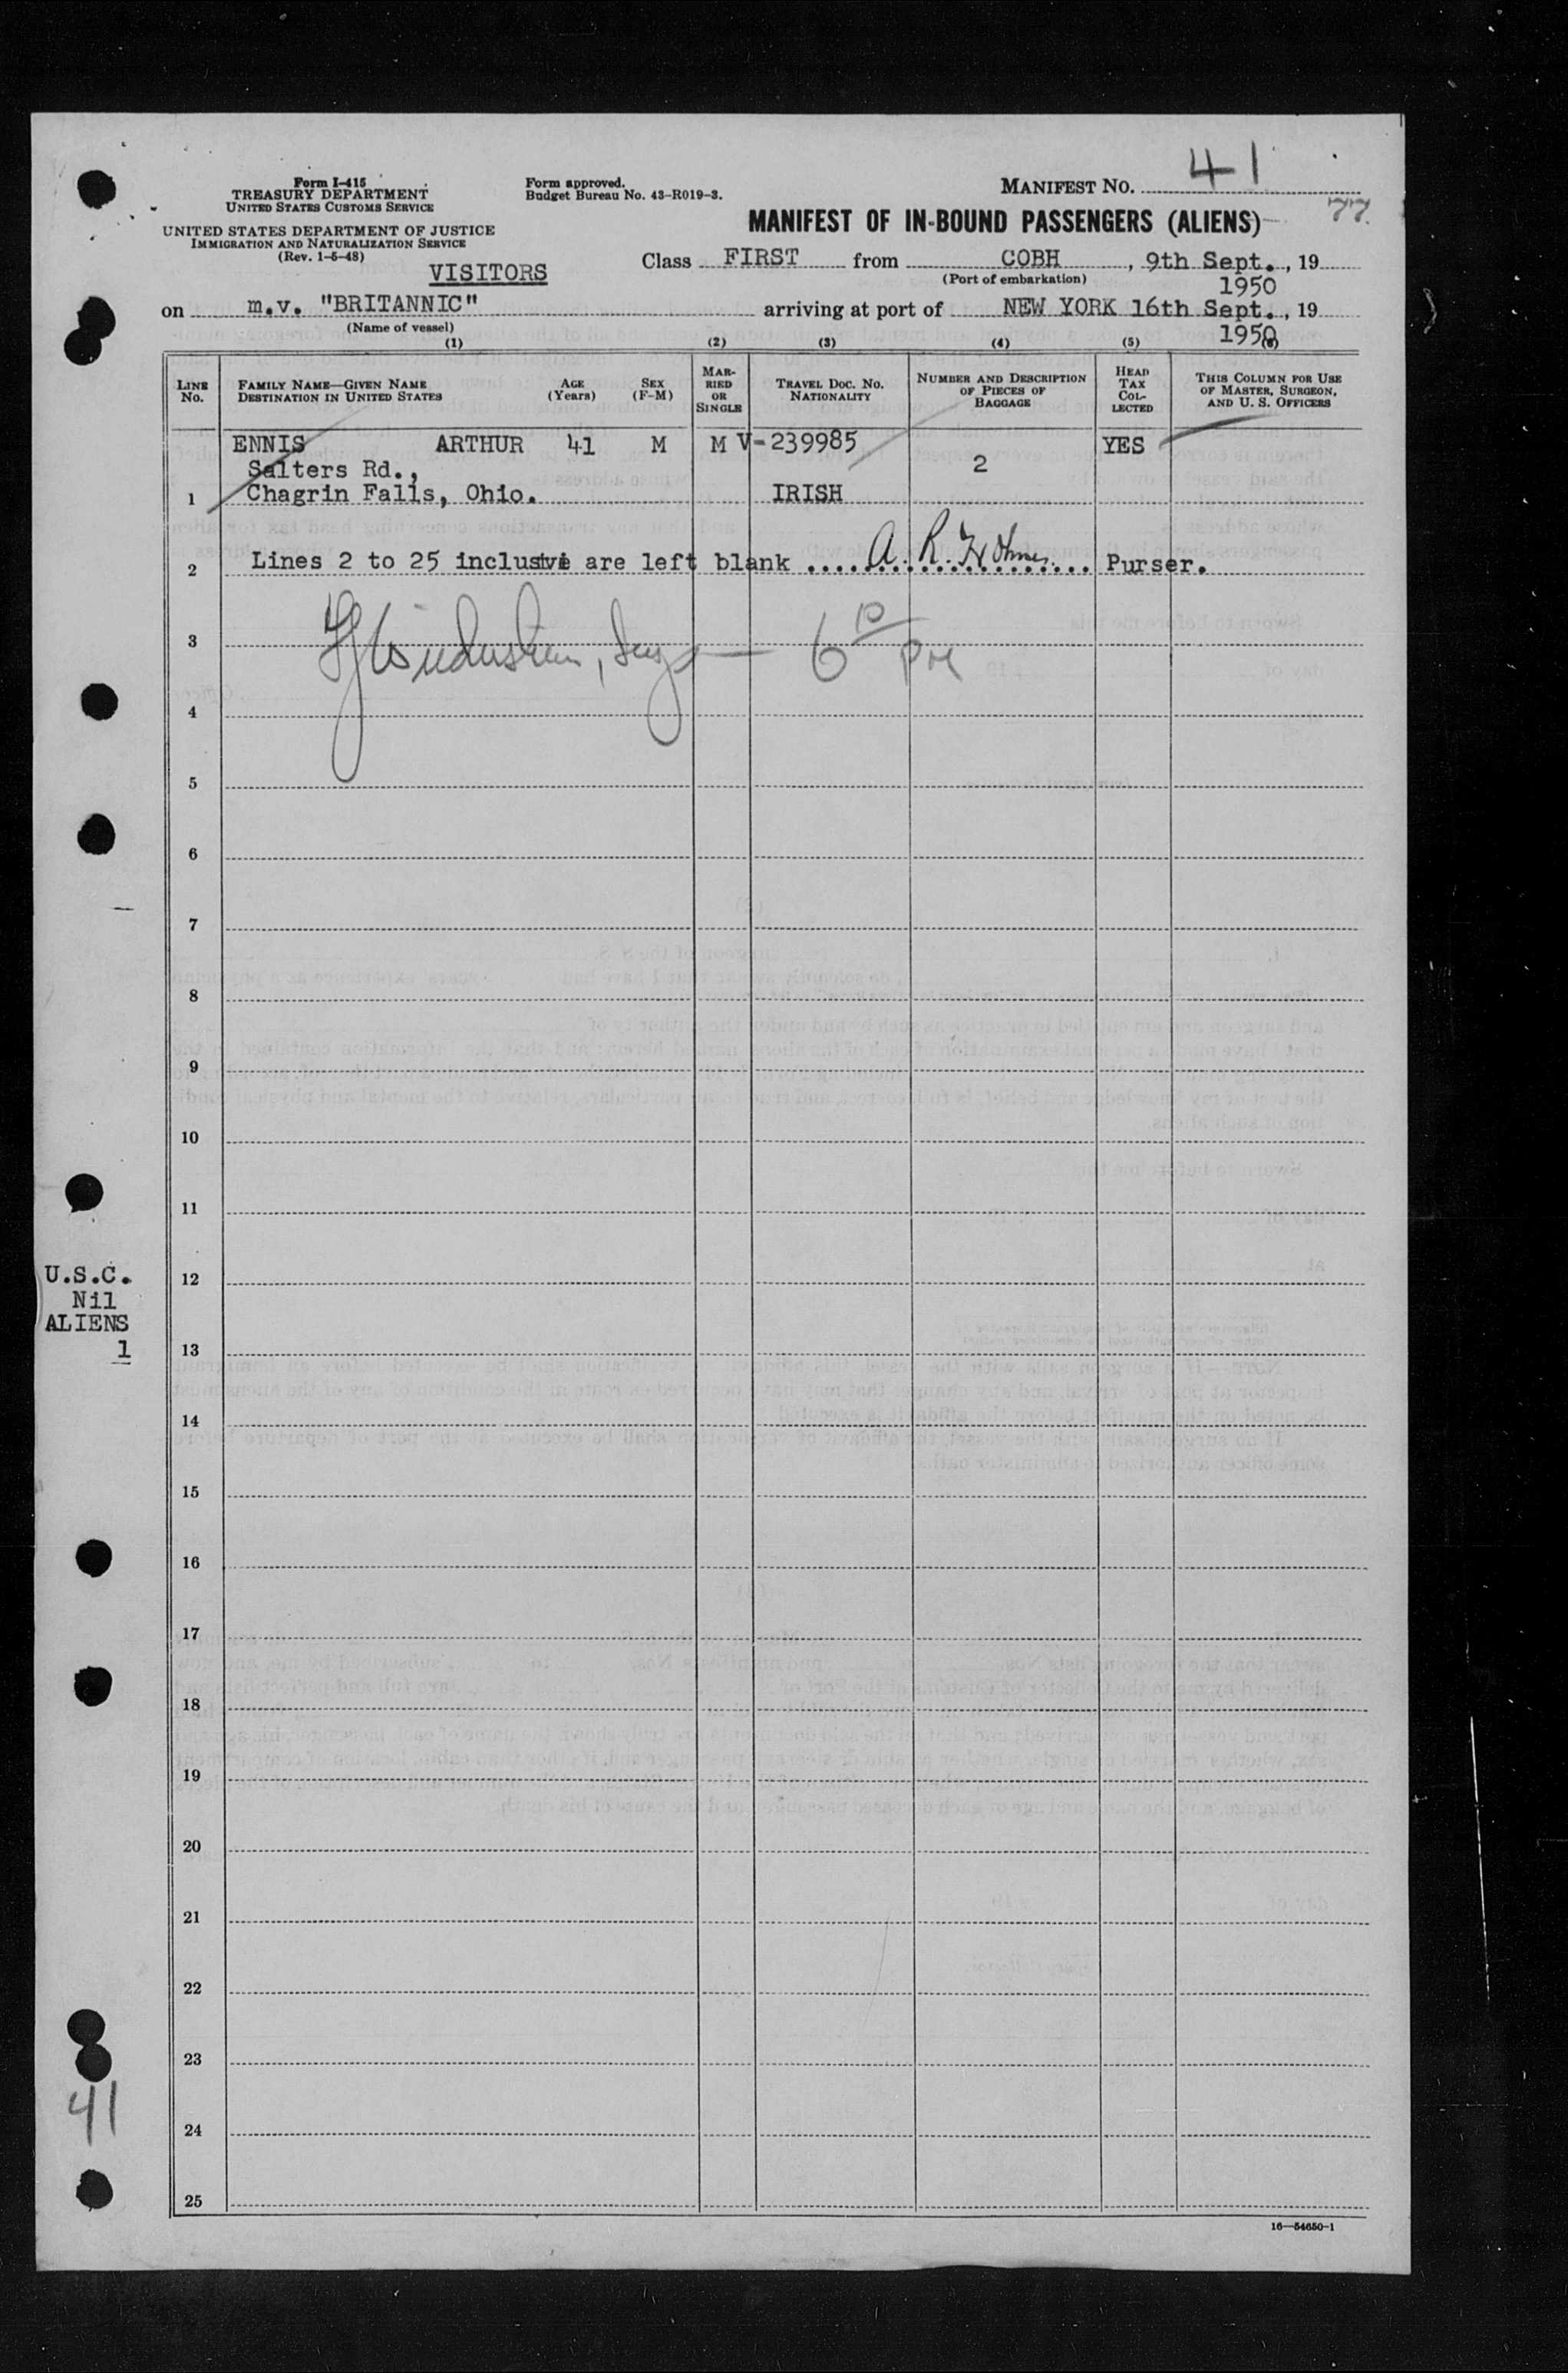 Form I-415
TREASURY DEPARTMENT
UNITED STATES CUSTOMS SERVICE
UNITED STATES DEPARTMENT OF JUSTICE
IMMIGRATION AND NATURALIZATION SERVICE
(Rev. 1-5-48)
Form approved.
Budget Bureau No. 43-R019-3.
MANIFEST NO. 41
MANIFEST OF IN-BOUND PASSENGERS (ALIENS) 77
VISITORS
Class FIRST from COBH, 9th Sept., 19
(Port of embarkation) 1950
on m.v. "BRITANNIC" arriving at port of NEW YORK 16th Sept., 19
(Name of vessel) 1950
(1) (2) (3) (4) (5) (6)
LINE No. FAMILY NAME—GIVEN NAME DESTINATION IN UNITED STATES AGE (Years) SEX (F-M) MARRIED OR SINGLE TRAVEL DOC. NO. NATIONALITY NUMBER AND DESCRIPTION OF PIECES OF BAGGAGE HEAD TAX COLLECTED THIS COLUMN FOR USE OF MASTER, SURGEON, AND U. S. OFFICERS
ENNIS ARTHUR 41 M M V-239985 YES
Salters Rd., 2
1 Chagrin Falls, Ohio. IRISH
2 Lines 2 to 25 inclusive are left blank A. R. Purser.
3 6 PM
4
5
6
7
8
9
10
11
U.S.C.
Nil
ALIENS
1
12
13
14
15
16
17
18
19
20
21
22
23
41
24
25
16—54650-1